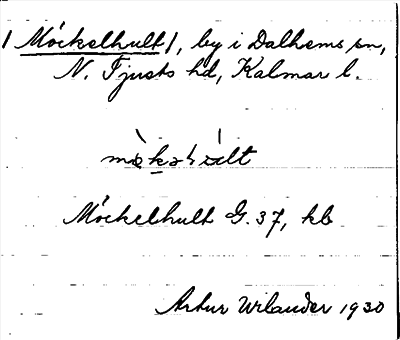 / Möckelhult /, by i Dalhems sn,
N. Tjusts hd, Kalmar l.
Möckelhult G. 37, kb
Artur Wilander 1930